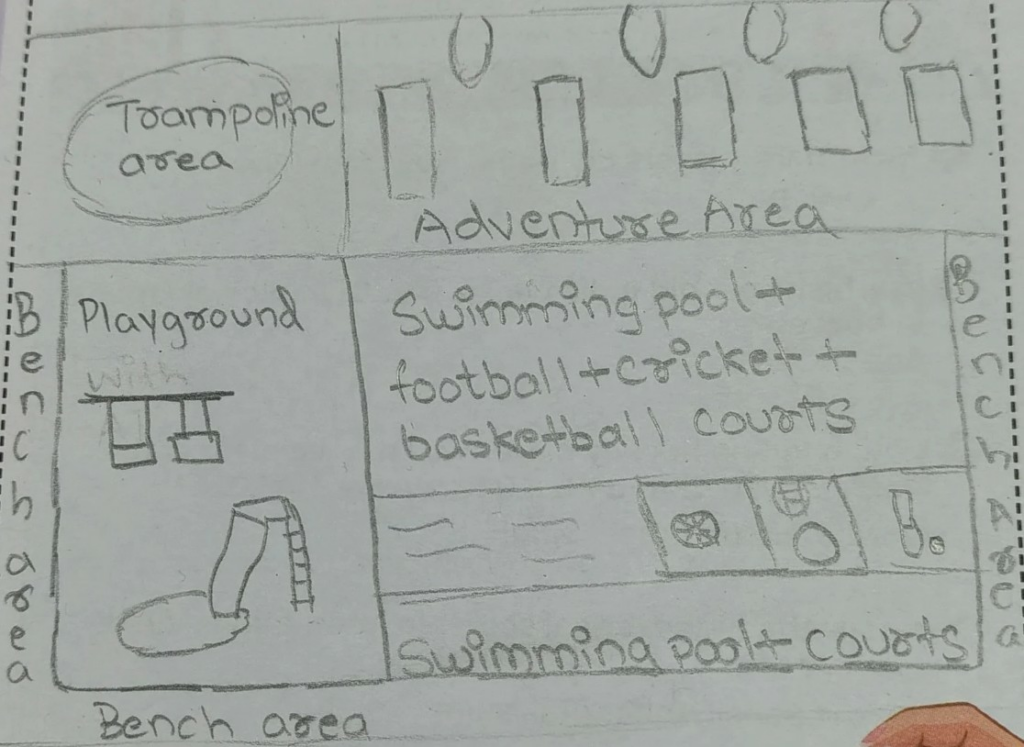 Trampoline
area
Adventure Area
Bench area
Playground
with
Swimming pool +
football + cricket +
basketball courts
Bench Area
Swimming pool + courts
Bench area